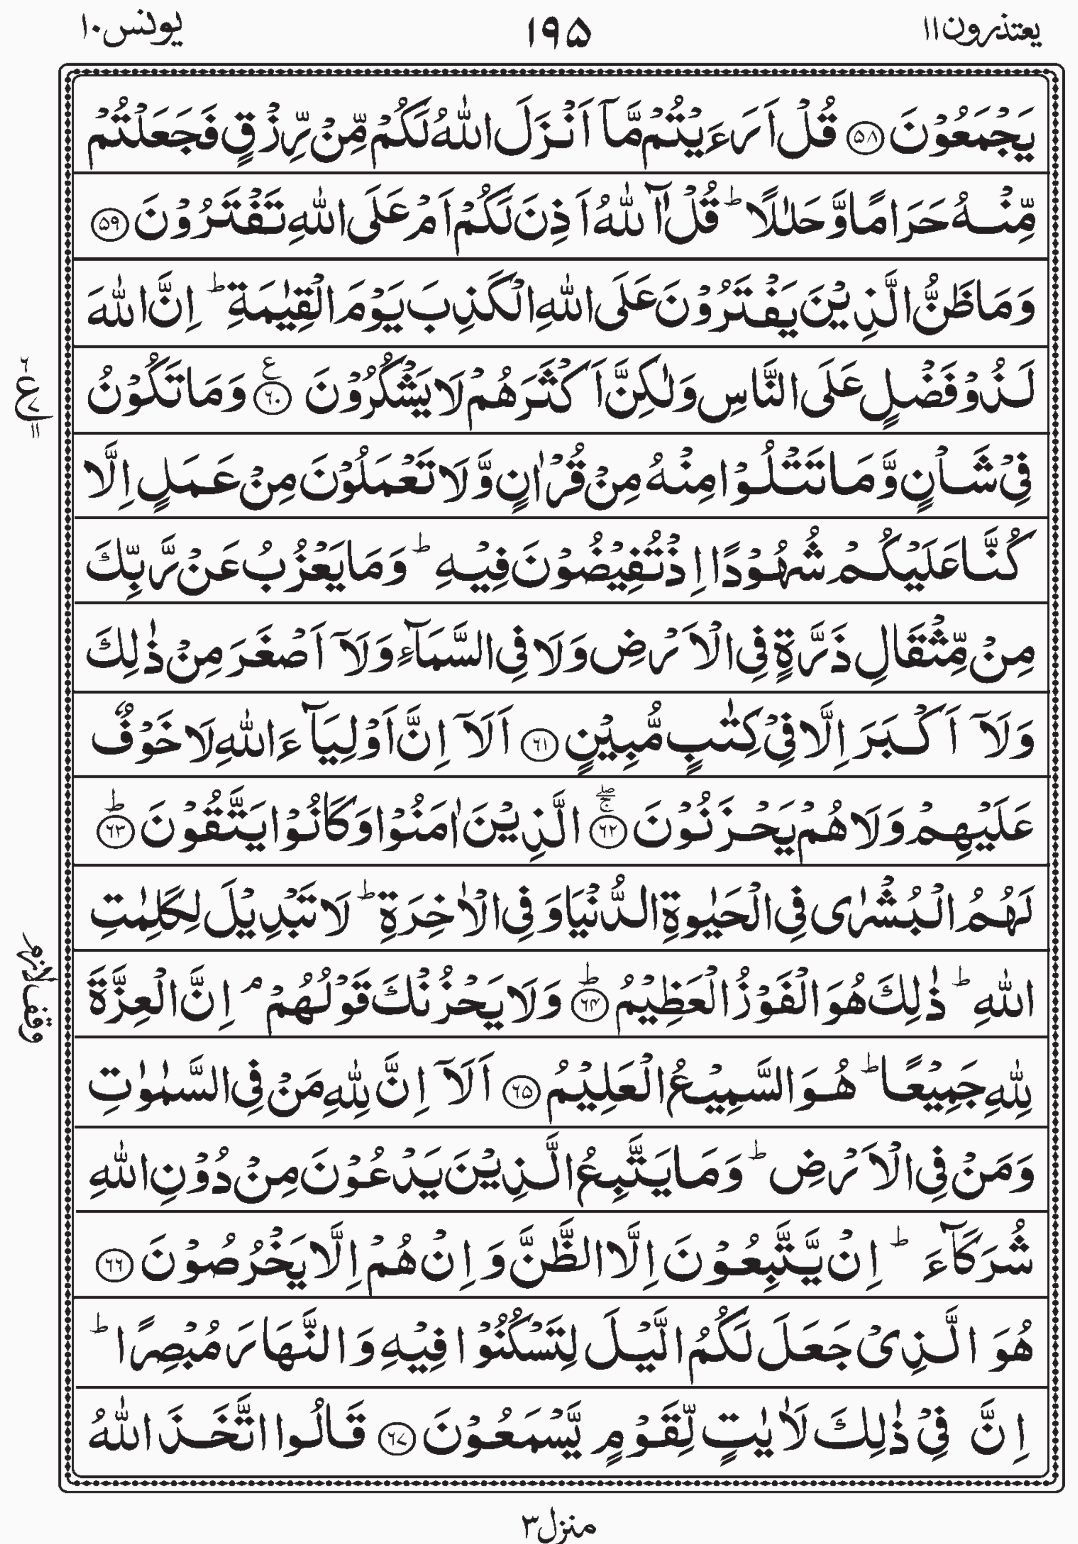 یعتذرون۱۱
۱۹۵
یونس۱۰
یَجْمَعُوْنَ ﴿۵۸﴾ قُلْ اَرَءَیْتُمْ مَّاۤ اَنْزَلَ اللّٰهُ لَكُمْ مِّنْ رِّزْقٍ فَجَعَلْتُمْ
مِّنْهُ حَرَامًا وَّحَلٰلًا ؕ قُلْ آٰللّٰهُ اَذِنَ لَكُمْ اَمْ عَلَی اللّٰهِ تَفْتَرُوْنَ ﴿۵۹﴾
وَمَا ظَنُّ الَّذِیْنَ یَفْتَرُوْنَ عَلَی اللّٰهِ الْكَذِبَ یَوْمَ الْقِیٰمَةِ ؕ اِنَّ اللّٰهَ
لَذُوْ فَضْلٍ عَلَی النَّاسِ وَلٰكِنَّ اَكْثَرَهُمْ لَا یَشْكُرُوْنَ ﴿۶۰﴾ وَمَا تَكُوْنُ
فِیْ شَاْنٍ وَّمَا تَتْلُوْا مِنْهُ مِنْ قُرْاٰنٍ وَّلَا تَعْمَلُوْنَ مِنْ عَمَلٍ اِلَّا
كُنَّا عَلَیْكُمْ شُهُوْدًا اِذْ تُفِیْضُوْنَ فِیْهِ ؕ وَمَا یَعْزُبُ عَنْ رَّبِّكَ
مِنْ مِّثْقَالِ ذَرَّةٍ فِی الْاَرْضِ وَلَا فِی السَّمَآءِ وَلَاۤ اَصْغَرَ مِنْ ذٰلِكَ
وَلَاۤ اَكْبَرَ اِلَّا فِیْ كِتٰبٍ مُّبِیْنٍ ﴿۶۱﴾ اَلَاۤ اِنَّ اَوْلِیَآءَ اللّٰهِ لَا خَوْفٌ
عَلَیْهِمْ وَلَا هُمْ یَحْزَنُوْنَ ﴿۶۲﴾ الَّذِیْنَ اٰمَنُوْا وَكَانُوْا یَتَّقُوْنَ ﴿۶۳﴾ؕ
لَهُمُ الْبُشْرٰی فِی الْحَیٰوةِ الدُّنْیَا وَفِی الْاٰخِرَةِ ؕ لَا تَبْدِیْلَ لِكَلِمٰتِ
اللّٰهِ ؕ ذٰلِكَ هُوَ الْفَوْزُ الْعَظِیْمُ ﴿۶۴﴾ؕ وَلَا یَحْزُنْكَ قَوْلُهُمْ ۘ اِنَّ الْعِزَّةَ
لِلّٰهِ جَمِیْعًا ؕ هُوَ السَّمِیْعُ الْعَلِیْمُ ﴿۶۵﴾ اَلَاۤ اِنَّ لِلّٰهِ مَنْ فِی السَّمٰوٰتِ
وَمَنْ فِی الْاَرْضِ ؕ وَمَا یَتَّبِعُ الَّذِیْنَ یَدْعُوْنَ مِنْ دُوْنِ اللّٰهِ
شُرَكَآءَ ؕ اِنْ یَّتَّبِعُوْنَ اِلَّا الظَّنَّ وَاِنْ هُمْ اِلَّا یَخْرُصُوْنَ ﴿۶۶﴾
هُوَ الَّذِیْ جَعَلَ لَكُمُ الَّیْلَ لِتَسْكُنُوْا فِیْهِ وَالنَّهَارَ مُبْصِرًا ؕ
اِنَّ فِیْ ذٰلِكَ لَاٰیٰتٍ لِّقَوْمٍ یَّسْمَعُوْنَ ﴿۶۷﴾ قَالُوا اتَّخَذَ اللّٰهُ
۶
ع
۷
۱۱
وقف لازم
منزل۳